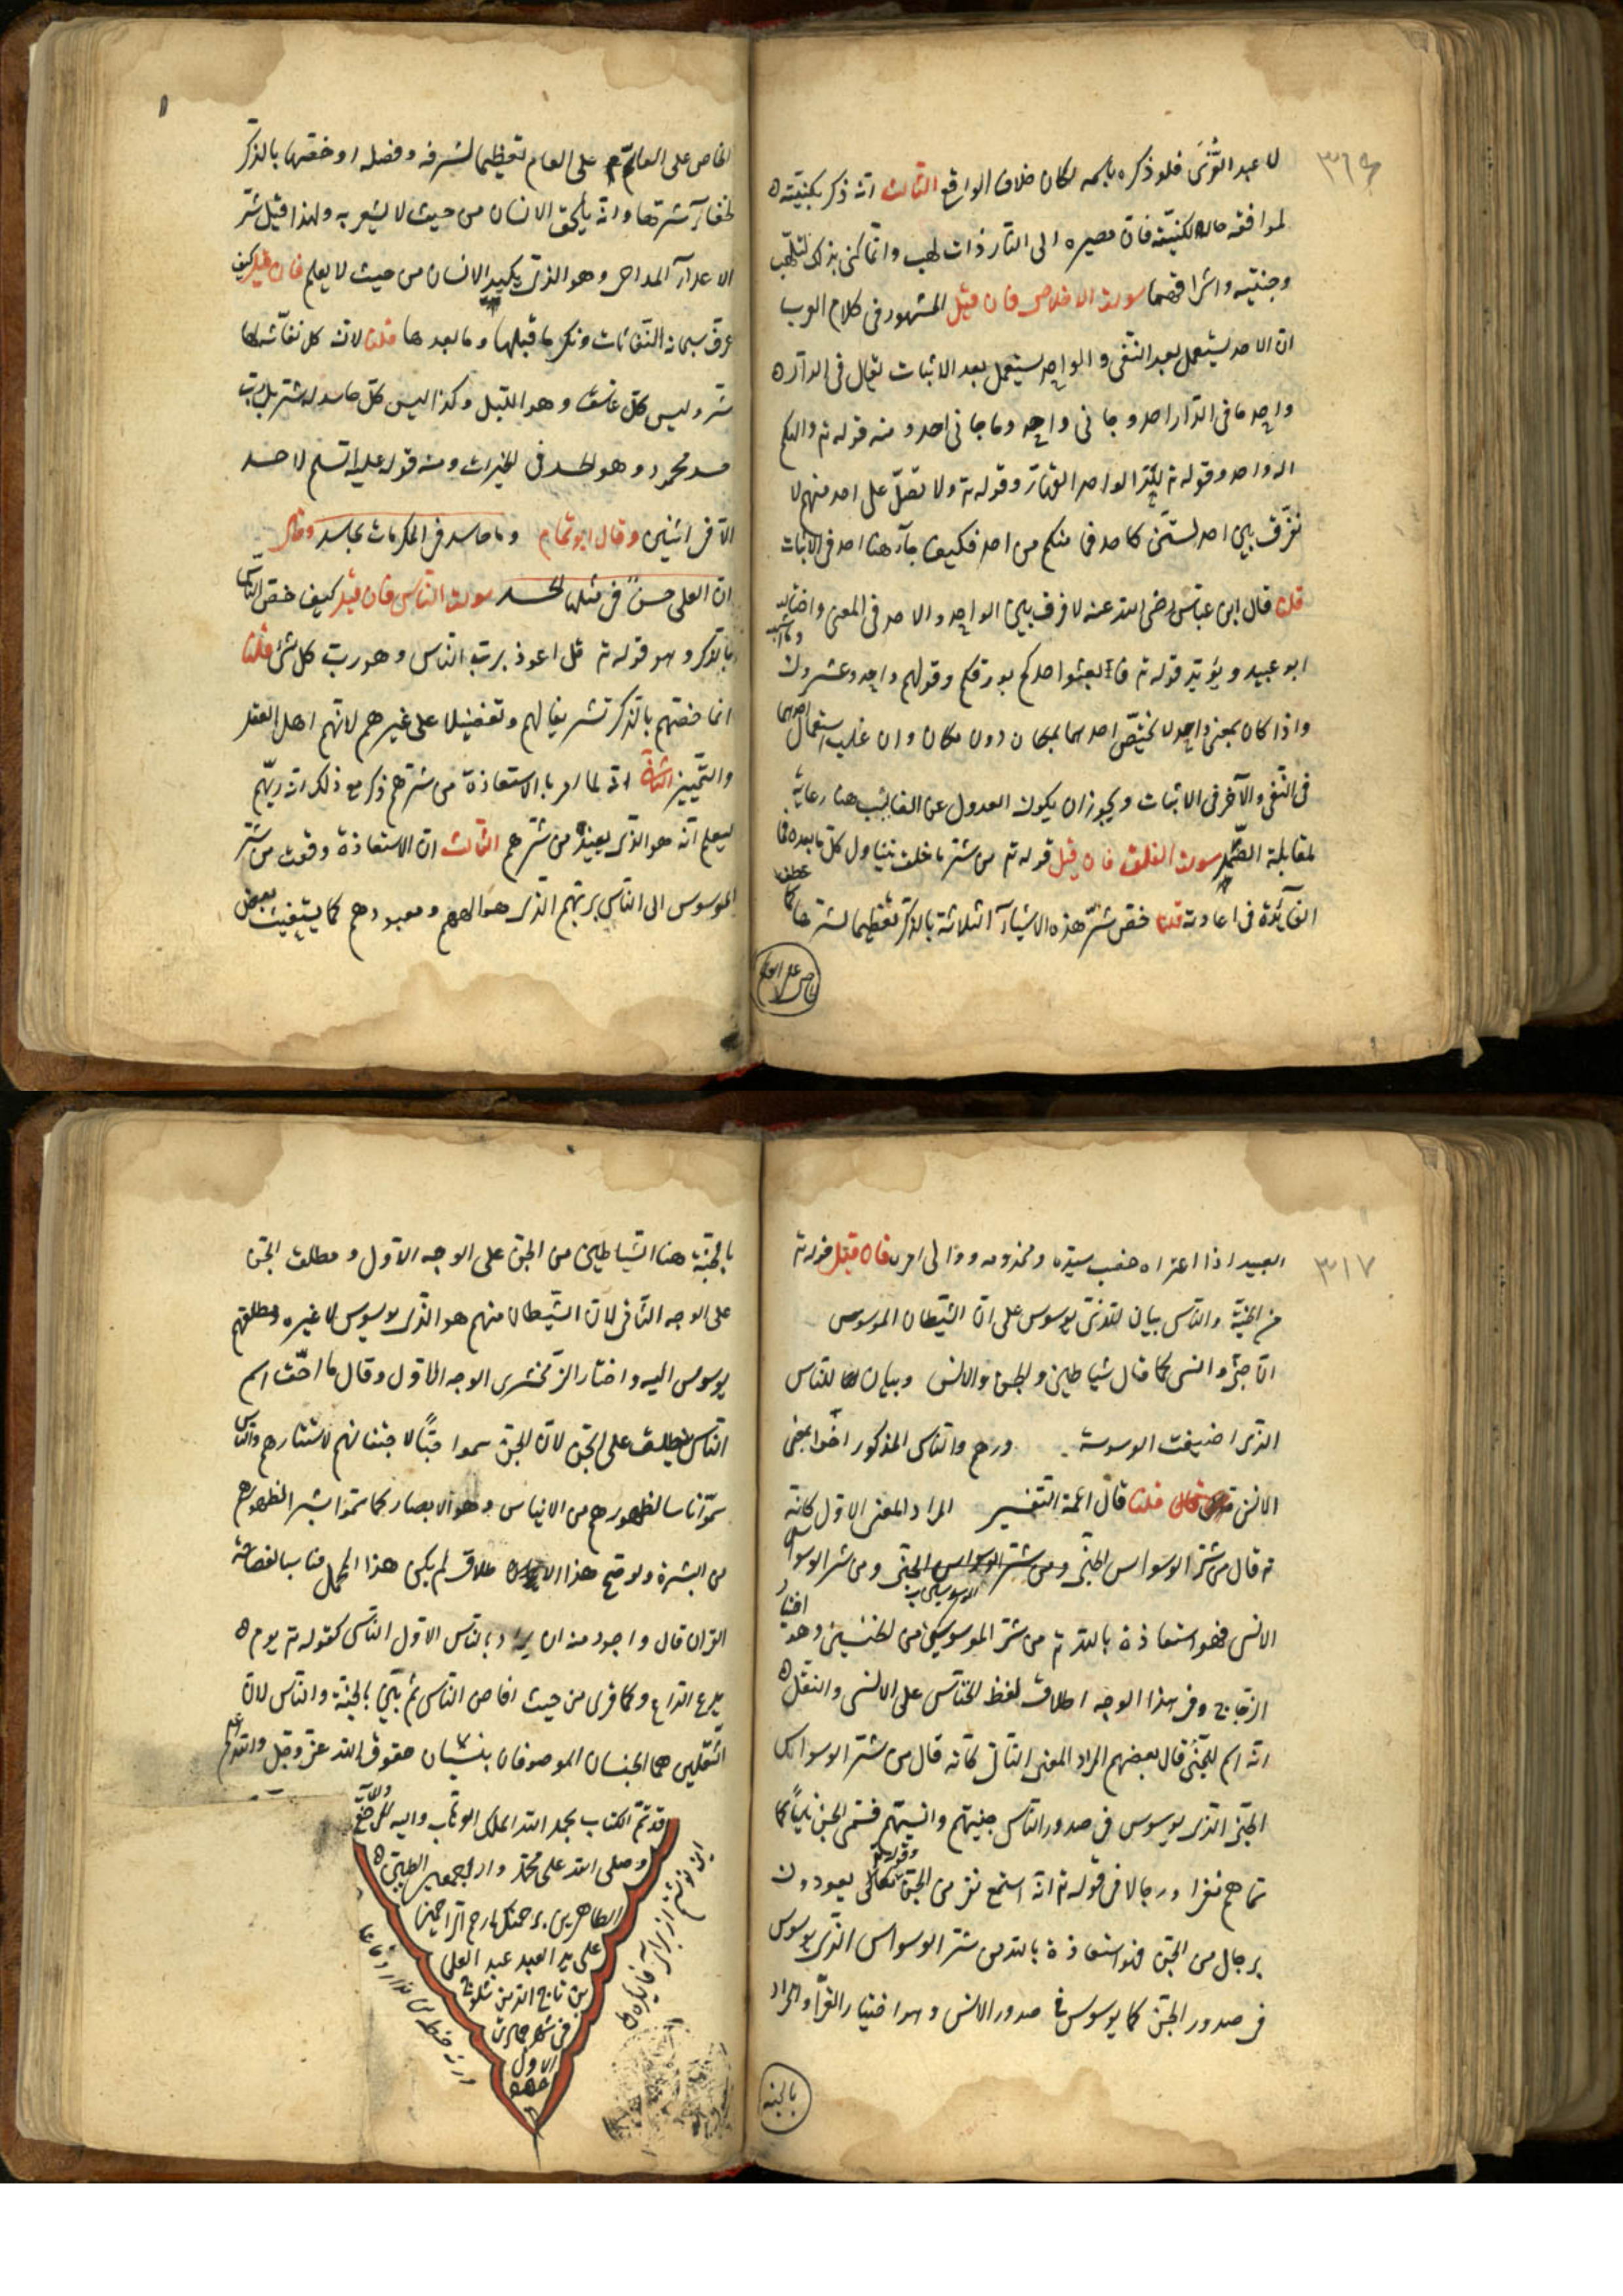 ٣١٦
لا عبد العزى فلو ذكره باسمه لكان خلاف الواقع الثالث انه ذكر بكنيته
لموافقة حاله لكنيته فان مصيره الى النار ذات لهب وانما كنى بذلك لتلهب
وجنتيه واشراقهما سورة الاخلاص فان قيل المشهور فى كلام العرب
ان الاحد يستعمل بعد النفى والواحد يستعمل بعد الاثبات يقال فى الدار
واحد ما فى الدار احد وجانى واحد وما جانى احد ومنه قوله تع والهكم
اله واحد وقوله تع لله الواحد القهار وقوله تع ولا تصلّ على احد منهم لا
نفرّق بين احد لستنّ كاحد فما منكم من احد فكيف جآء هنا احد فى الاثبات
قلنا قال ابن عباس رضى الله عنه لا فرق بين الواحد والاحد فى المعنى واختاره
ابو عبيد ويؤيد قوله تع فابعثوا احدكم بورقكم وقولهم واحد وعشرون
وما اشبه
واذا كان بمعنى واحد لا يختصّ احدهما بمكان دون مكان وان غلب استعمال احدهما
فى النفى والآخر فى الاثبات ويجوز ان يكون العدول عن الغالب هنا رعاية
لمقابلة الصّمد سورة الفلق فان قيل قوله تع من شر ما خلق يتناول كل ما بعده فما
الفآئدة فى اعادته قلنا خصّ شرّ هذه الاشيآء الثلاثة بالذكر تعظيما لشرها كما
عطف
خاص على العام
الخاص على العام على العام تعظيما لشرفه وفضله او خصّها بالذكر
لخفآء شرها وانه يلحق الانسان من حيث لا يشعر به ولهذا قيل شرّ
الاعدآء المداجى وهو الذى يكيد الانسان من حيث لا يعلم فان قيل كيف
عرف سبحانه النفاثات ونكر ما قبلها وما بعدها قلنا لان كل نفاثة لها
شر وليس كلّ غاسق وهو الليل وكذا ليس كلّ حاسد له شر بل ربّ
حسد محمود وهو الحسد فى الخيرات ومنه قوله عليه السلم لا حسد
الا فى اثنين وقال ابو تمام وما حاسد فى المكرمات بحاسد وقال
ان العلى حسن فى مثلها الحسد سورة الناس فان قيل كيف خصّ الناس
بالذكر وهو قوله تع قل اعوذ برب الناس وهو ربّ كل شئ قلنا
انما خصّهم بالذكر تشريفا لهم وتفضيلا على غيرهم لانهم اهل العقل
والتمييز الثانى انه لما امر بالاستعاذة من شرهم ذكر مع ذلك انه ربّهم
ليعلم انه هو الذى يعيذه من شرهم الثالث ان الاستعاذة وقعت من شر
الموسوس الى الناس بربهم الذى هو الههم ومعبودهم كما يستغيث بعض
٣١٧
العبيد اذا اعتراه خطب بسيده ومخدومه ووالى امره فان قيل قوله تع
من الجنة والناس بيان للذى يوسوس على ان الشيطان الموسوس
انّا جنّى وانسى كما قال شياطين الجن والانس وبيان للناس
الذى اضيفت الوسوسة ورهم والناس المذكور آخرا بمعنى
الانس قلنا قال ائمة التفسير المراد المعنى الاول كانه
تع قال من شر الوسواس الجنى ومن شر الوسواس
الانس فهو استعاذة بالله تع من شر الموسوسين من الجنسين وهو اختيار
الزجاج وفى هذا الوجه اطلاق لفظ الخناس على الانس والنقل
انه اسم للجنّى قال بعضهم المراد المعنى الثانى كانه قال من شر الوسواس
الجنّى الذى يوسوس فى صدور الناس جنيّهم وانسيّهم فسمى الجن ناسًا كما
سماهم نفرا ورجالا فى قوله تع انه استمع نفر من الجن وقوله تع يعوذون
برجال من الجن فهو استعاذة بالله من شر الوسواس الذى يوسوس
فى صدور الجن كما يوسوس فى صدور الانس وهو اختيار الفرّآء والمراد
بالجنه
بالجنّة هنا الشياطين من الجن على الوجه الاول ومطلق الجن
على الوجه الثانى لان الشيطان منهم هو الذى يوسوس لا غيره ومطلقهم
يوسوس اليه واختار الزمخشرى الوجه الاول وقال ما احقّ اسم
الناس ينطلق على الجن لان الجن سموا جنّا لاجتنانهم لاستتارهم والناس
سمّوا ناسا لظهورهم من الايناس وهو الابصار كما سمّوا بشرا لظهورهم
من البشرة ولو صح هذا الاطلاق لم يكن هذا المحمل مناسبا لفصاحة
القران قال واجود منه ان يراد بالناس الاول الناسى كقوله تع يوم
يدع الداع وكما قرئ من حيث افاض الناس ثم بيّن بالجنة والناس لان
الثقلين هما الجنسان الموصوفان بنسيان حقوق الله عز وجل والله اعلم
قد تمّ الكتاب بحمد الله الملك الوهاب واليه
وصلى الله على محمد وآله اجمعين الطيبين
الطاهرين برحمتك يا ارحم الراحمين
على يد العبد عبد العلى
بن تاج الدين
فى شهر جمادى
الاول